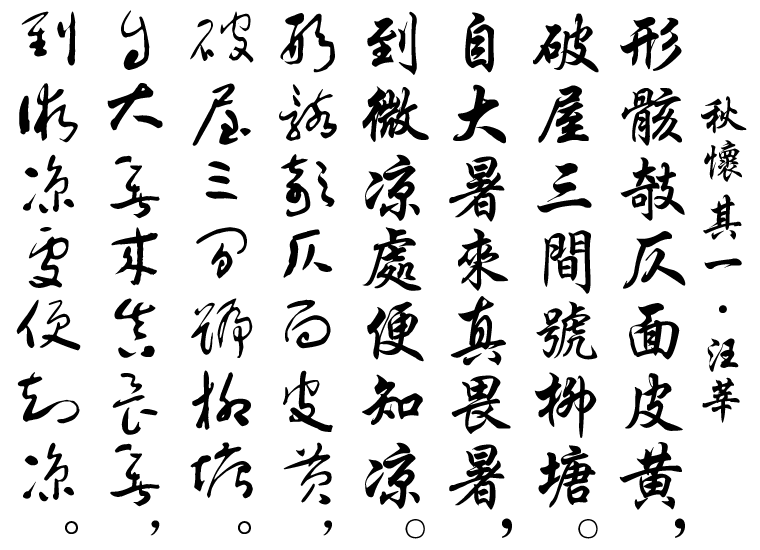 秋懷其一·汪莘
形骸攲仄面皮黃，
破屋三間號柳塘。
自大暑來真畏暑，
到微凉處便知凉。
形骸攲仄面皮黃，
破屋三間號柳塘。
自大暑來真畏暑，
到微凉處便知凉。